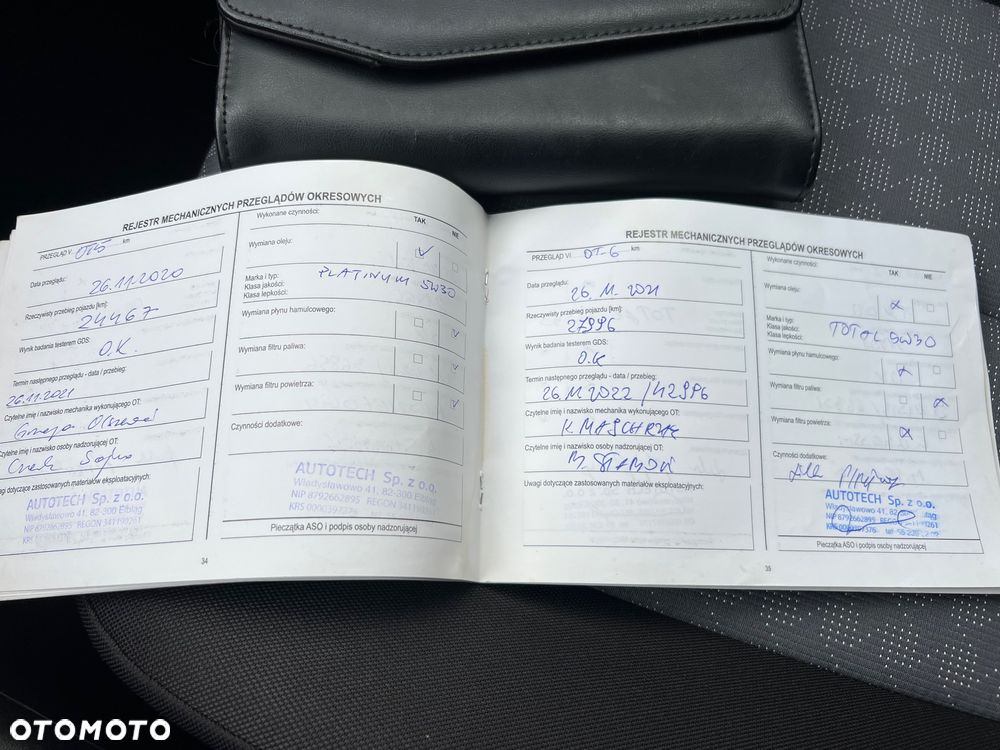 REJESTR MECHANICZNYCH PRZEGLĄDÓW OKRESOWYCH
PRZEGLĄD V km
Data przeglądu:
26.11.2020
Rzeczywisty przebieg pojazdu [km]:
24467
Wynik badania testerem GDS:
O.K.
Termin następnego przeglądu - data / przebieg:
26.11.2021
Czytelne imię i nazwisko mechanika wykonującego OT:
Czytelne imię i nazwisko osoby nadzorującej OT:
Uwagi dotyczące zastosowanych materiałów eksploatacyjnych:
AUTOTECH Sp. z o.o.
Władysławowo 41, 82-300 Elbląg
NIP 8792662895 REGON 341199261
Wykonane czynności:
TAK NIE
Wymiana oleju:
Marka i typ:
Klasa jakości:
Klasa lepkości:
PLATINUM 5W30
Wymiana płynu hamulcowego:
Wymiana filtru paliwa:
Wymiana filtru powietrza:
Czynności dodatkowe:
AUTOTECH Sp. z o.o.
Władysławowo 41, 82-300 Elbląg
NIP 8792662895 REGON 341199261
KRS 0000397376
Pieczątka ASO i podpis osoby nadzorującej
34
REJESTR MECHANICZNYCH PRZEGLĄDÓW OKRESOWYCH
PRZEGLĄD VI OT-6 km
Data przeglądu:
26.11.2021
Rzeczywisty przebieg pojazdu [km]:
27996
Wynik badania testerem GDS:
O.K
Termin następnego przeglądu - data / przebieg:
26.11.2022 / 42996
Czytelne imię i nazwisko mechanika wykonującego OT:
Czytelne imię i nazwisko osoby nadzorującej OT:
Uwagi dotyczące zastosowanych materiałów eksploatacyjnych:
Wykonane czynności:
TAK NIE
Wymiana oleju:
Marka i typ:
Klasa jakości:
Klasa lepkości:
TOTAL 5W30
Wymiana płynu hamulcowego:
Wymiana filtru paliwa:
Wymiana filtru powietrza:
Czynności dodatkowe:
AUTOTECH Sp. z o.o.
Władysławowo 41,
NIP 8792662895
Pieczątka ASO i podpis osoby nadzorującej
35
OTOMOTO